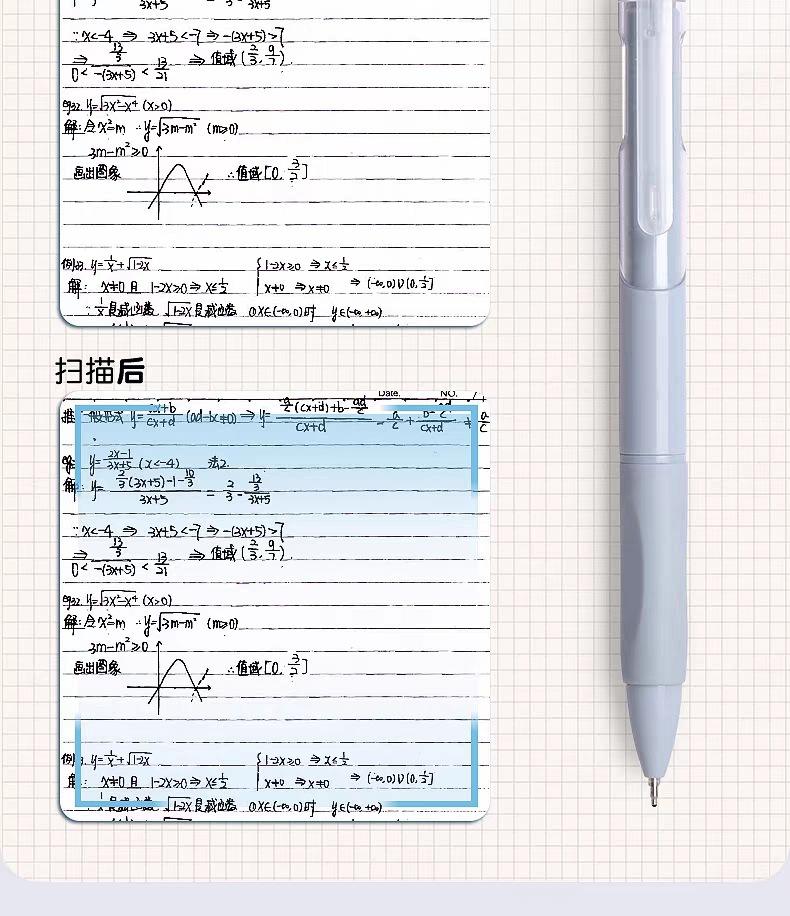 3x+5 3 3x+5
∵x<-4 ⇒ 3x+5<-7 ⇒ -(3x+5)>7
⇒ 0< (13/3)/-(3x+5) < 13/21 ⇒ 值域(2/3, 9/7).
例2. y=√3x²-x⁴ (x>0)
解:令x²=m ∴y=√3m-m² (m>0)
3m-m²≥0
画出图象 ∴值域[0, 3/2]
例3. y=1/x+√1-2x {1-2x≥0 ⇒x≤1/2
解: x≠0且 1-2x≥0⇒x≤1/2 x≠0 ⇒x≠0 ⇒ (-∞,0)∪(0,1/2]
∵1/x是减函数 √1-2x是减函数 ①x∈(-∞,0)时 y∈(-∞,+∞)
扫描后
Date. NO.
推: 一般形式 y=ax+b/cx+d (ad-bc≠0) ⇒ y= a/c(cx+d)+b-ad/c / cx+d = a/c + b-ad/c / cx+d ≠ a/c
y=2x-1/3x+5 (x<-4) 法2.
解: y= 2/3(3x+5)-1-10/3 / 3x+5 = 2/3 - 13/3 / 3x+5
∵x<-4 ⇒ 3x+5<-7 ⇒ -(3x+5)>7
⇒ 0< (13/3)/-(3x+5) < 13/21 ⇒ 值域(2/3, 9/7).
例2. y=√3x²-x⁴ (x>0)
解:令x²=m ∴y=√3m-m² (m>0)
3m-m²≥0
画出图象 ∴值域[0, 3/2]
例3. y=1/x+√1-2x {1-2x≥0 ⇒x≤1/2
解: x≠0且 1-2x≥0⇒x≤1/2 x≠0 ⇒x≠0 ⇒ (-∞,0)∪(0,1/2]
1/x是减函数 √1-2x是减函数 ①x∈(-∞,0)时 y∈(-∞,+∞)